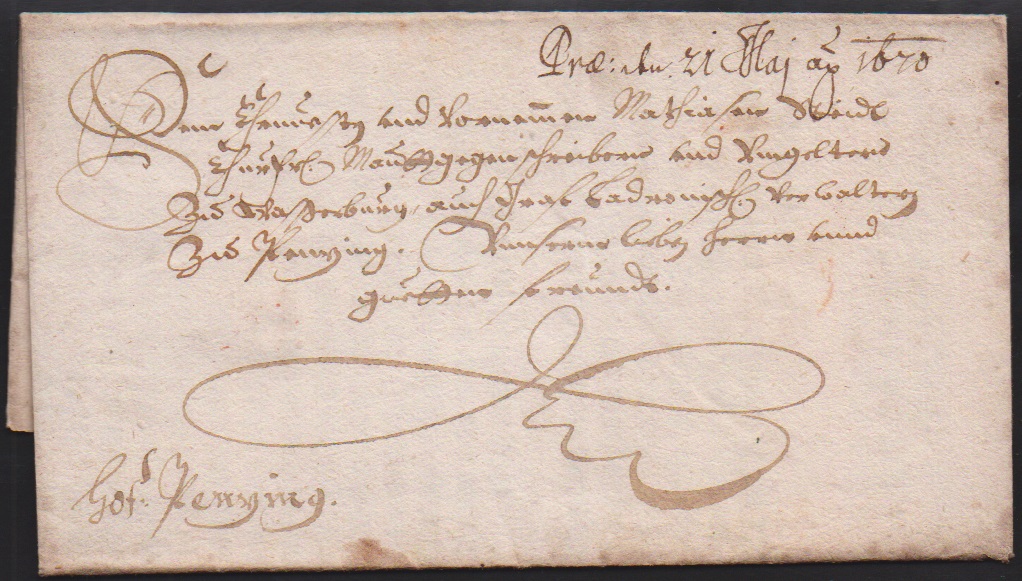 Præ: den 21 Maj aō 1670
Dem Ehruesten und Vornemmen Mathiasen Neidl
Churfrl. Mautgegenschreibern und Vmgeltern
Zu Wasserburg, auch Graf Ladronisch. Verwaltern
Zu Penzing. Vnserm lieben Herrn vnnd
guetten Freundt.
Hof: Penzing.